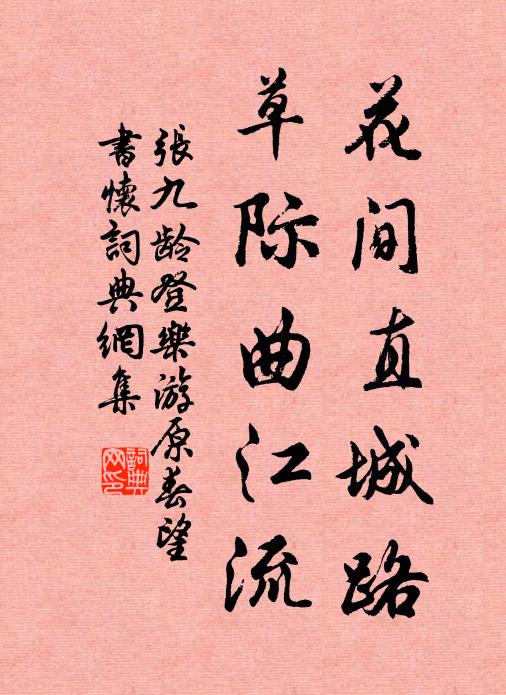 花间直城路
草际曲江流
張九龄登樂游原春望
書懷詞典網集
詞典
网印